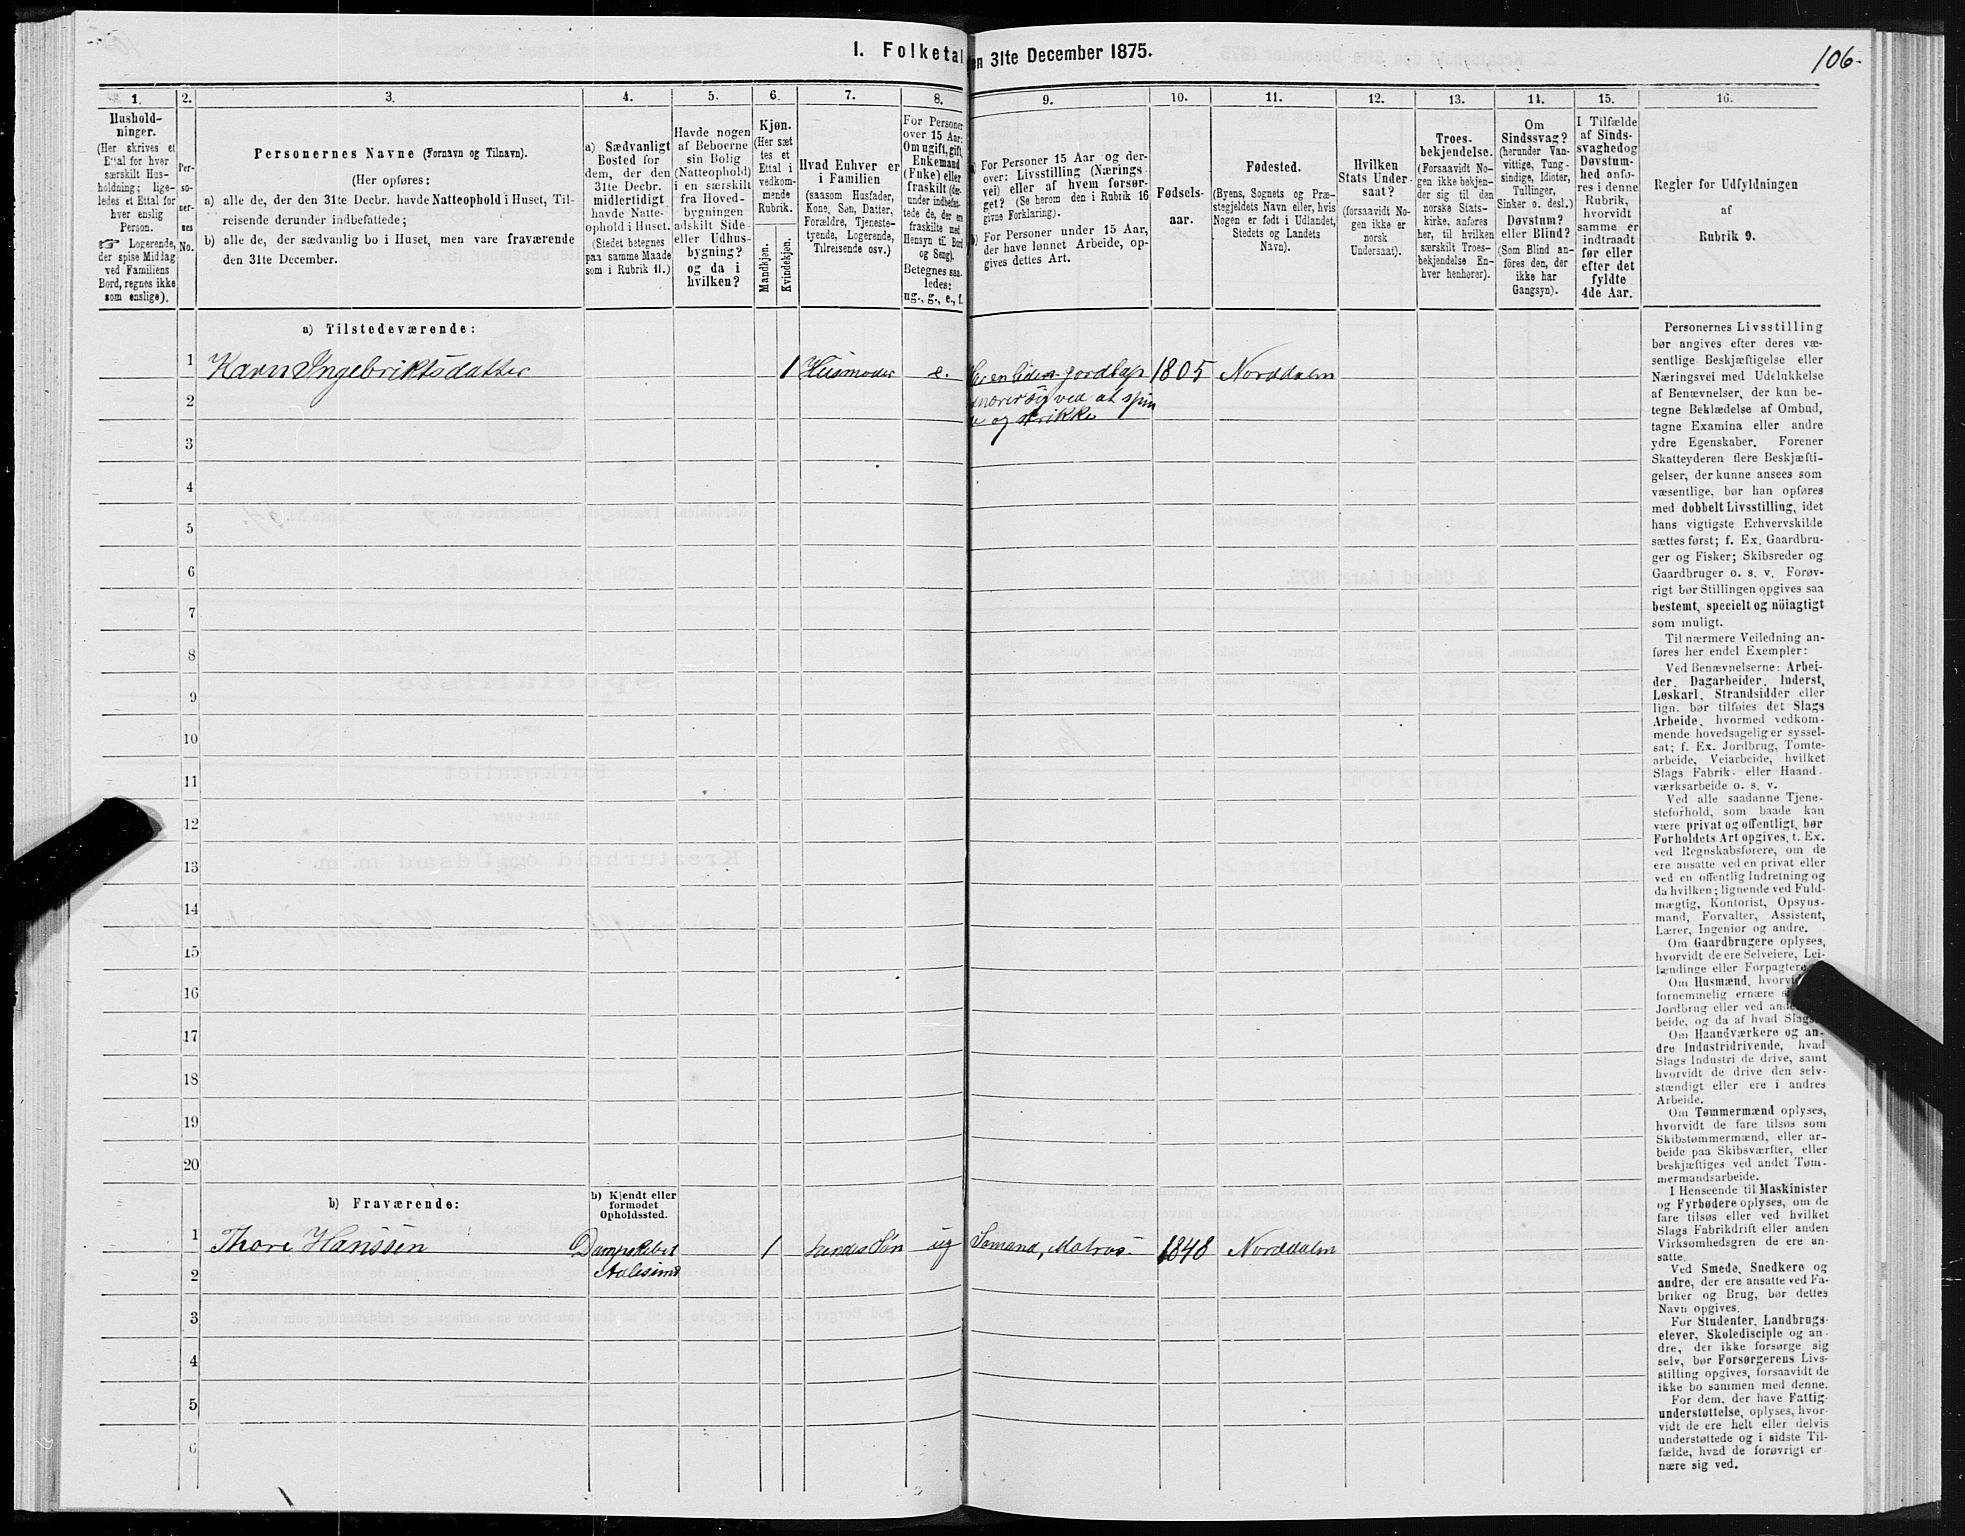 106.
1. Folketal
en 31te December 1875.
1.
2.
3.
4.
5.
6.
7.
8.
9.
10.
11.
12.
13.
14.
15.
16.
Hushold-
ninger.
(Her skrives et
Ettal for hver
særskilt Hus-
holdning; lige-
ledes et Ettal for
hver enslig
Person.
☞ Logerende,
der spise Middag
ved Familiens
Bord, regnes ikke
som enslige).
Per-
so-
ner-
nes
No.
Personernes Navne (Fornavn og Tilnavn).
(Her opføres:
a) alle de, der den 31te Decbr. havde Natteophold i Huset, Til-
reisende derunder indbefattede;
b) alle de, der sædvanlig bo i Huset, men vare fraværende
den 31te December.
a) Sædvanligt
Bosted for
dem, der den
31te Decbr.
midlertidigt
havde Natte-
ophold i Huset.
(Stedet betegnes
paa samme Maade
som i Rubrik 11.)
Havde nogen
af Beboerne
sin Bolig
(Natteophold)
i en særskilt
fra Hoved-
bygningen
adskilt Side-
eller Udhus-
bygning?
og da i
hvilken?
Kjøn.
(Her sæt
tes et
Ettal i
vedkom-
mende
Rubrik.
Mandkjøn.
Kvindekjøn.
Hvad Enhver er
i Familien
(saasom Husfader,
Kone, Søn, Datter,
Forældre, Tjeneste-
tyende, Logerende,
Tilreisende osv.)
For Personer
over 15 Aar:
Om ugift, gift,
Enkemand
(Enke) eller
fraskilt (der-
under indbefat-
tede de, der ere
fraskilte med
Hensyn til Bord
og Seng).
Betegnes saa-
ledes:
ug., g., e., f.
a) For Personer 15 Aar og der-
over: Livsstilling (Nærings
vei) eller af hvem forsør-
get? (Se herom den i Rubrik 16
givne Forklaring).
b) For Personer under 15 Aar,
der have lønnet Arbeide, op-
gives dettes Art.
Fødsels-
aar.
Fødested.
(Byens, Sognets og Præ-
stegjeldets Navn eller, hvis
Nogen er født i Udlandet,
Stedets og Landets
Navn).
Hvilken
Stats Under-
saat?
(forsaavidt No-
gen ikke er
norsk
Undersaat).
Troes-
bekjendelse.
(Forsaavidt No-
gen ikke bekjen-
der sig til den
norske Stats-
kirke, anføres
her, til hvilken
særskilt Troes-
bekjendelse En-
hver henhører).
Om
Sindssvag?
(herunder Van-
vittige, Tung-
sindige, Idioter,
Tullinger,
Sinker o. desl.)
Døvstum?
eller Blind?
(Som Blind an-
føres den, der
ikke har
Gangsyn).
I Tilfælde
af Sinds-
svaghed og
Døvstum-
hed anfø-
res i denne
Rubrik,
hvorvidt
samme er
indtraadt
før eller
efter det
fyldte
4de Aar.
Regler for Udfyldningen
af
Rubrik 9.
a) Tilstedeværende:
1 Karn Ingebriktsdatter 1 Husmoder e. 1805 Norddalen
2
og strikke
3
4
5
6
7
8
9
10
11
12
13
14
15
16
17
18
19
20
b) Fraværende:
b) Kjendt eller
formodet
Opholdssted.
1 Thore Hanssen Dampskibet 1 hendes Søn ug Sømand, Matros 1848 Norddalen
2 Aalesund
3
4
5
6
Personernes Livsstilling
bør angives efter deres væ-
sentlige Beskjæftigelse eller
Næringsvei med Udelukkelse
af Benævnelser, der kun be-
tegne Beklædelse af Ombud,
tagne Examina eller andre
ydre Egenskaber. Forener
Skatteyderen flere Beskjæfti-
gelser, der kunne ansees som
væsentlige, bør han opføres
med dobbelt Livsstilling, idet
hans vigtigste Erhvervskilde
sættes først; f. Ex. Gaardbru-
ger og Fisker; Skibsreder og
Gaardbruger o. s. v. Forøv-
rigt bør Stillingen opgives saa
bestemt, specielt og nöiagtigt
som muligt.
Til nærmere Veiledning an-
føres her endel Exempler:
Ved Benævnelserne: Arbei-
der, Dagarbeider, Inderst,
Løskarl, Strandsidder eller
lign. bør tilføies det Slags
Arbeide, hvormed vedkom-
mende hovedsagelig er syssel-
sat; f. Ex. Jordbrug, Tomte-
arbeide, Veiarbeide, hvilket
Slags Fabrik- eller Haand-
værksarbeide o. s. v.
Ved alle saadanne Tjene-
steforhold, som baade kan
være privat og offentligt, bør
Forholdets Art opgives, t. Ex.
ved Regnskabsførere, om de
ere ansatte ved en privat eller
ved en offentlig Indretning og
da hvilken; lignende ved Fuld-
mægtig, Kontorist, Opsyns-
mand, Forvalter, Assistent,
Lærer, Ingeniør og andre.
Om Gaardbrugere oplyses,
hvorvidt de ere Selveiere, Lei-
lændinge eller Forpagtere
Om Husmænd,
fornemmelig ernære
Jordbrug eller ved
beide, og da af hvad Slags
Om Haandværkere og an-
dre Industridrivende, hvad
Slags Industri de drive, samt
hvorvidt de drive den selv-
stændigt eller ere i andres
Arbeide.
Om Tømmermænd oplyses,
hvorvidt de fare tilsøs som
Skibstømmermænd, eller ar-
beide paa Skibsværfter, eller
beskjæftiges ved andet Tøm-
mermandsarbeide.
I Henseende til Maskinister
og Fyrbødere oplyses, om de
fare tilsøs eller ved hvilket
Slags Fabrikdrift eller anden
Virksomhedsgren de ere an-
satte.
Ved Smede, Snedkere og
andre, der ere ansatte ved Fa-
briker og Brug, bør dettes
Navn opgives.
For Studenter, Landbrugs-
elever, Skoledisciple og an-
dre, der ikke forsørge sig
selv, bør Forsørgerens Livs-
stilling opgives, forsaavidt de
ikke bo sammen med denne.
For dem, der have Fattig-
understøttelse, oplyses, hvor-
vidt de ere helt eller delvis
understøttede og i sidste Til-
fælde, hvad de forøvrigt er-
nære sig ved.